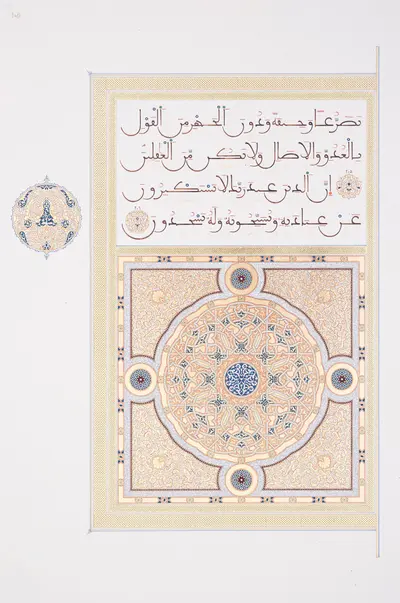 تضرعا وخيفة ودون الجهر من القول
بالغدو والاصال ولا تكن من الغفلين
ان الذين عند ربك لا يستكبرون
عن عبادته ويسبحونه وله يسجدون